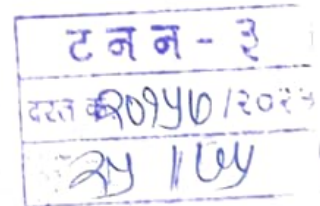 ट न न - ३
दस्त क्र २०१५७ / २०२५
२५ | ७५